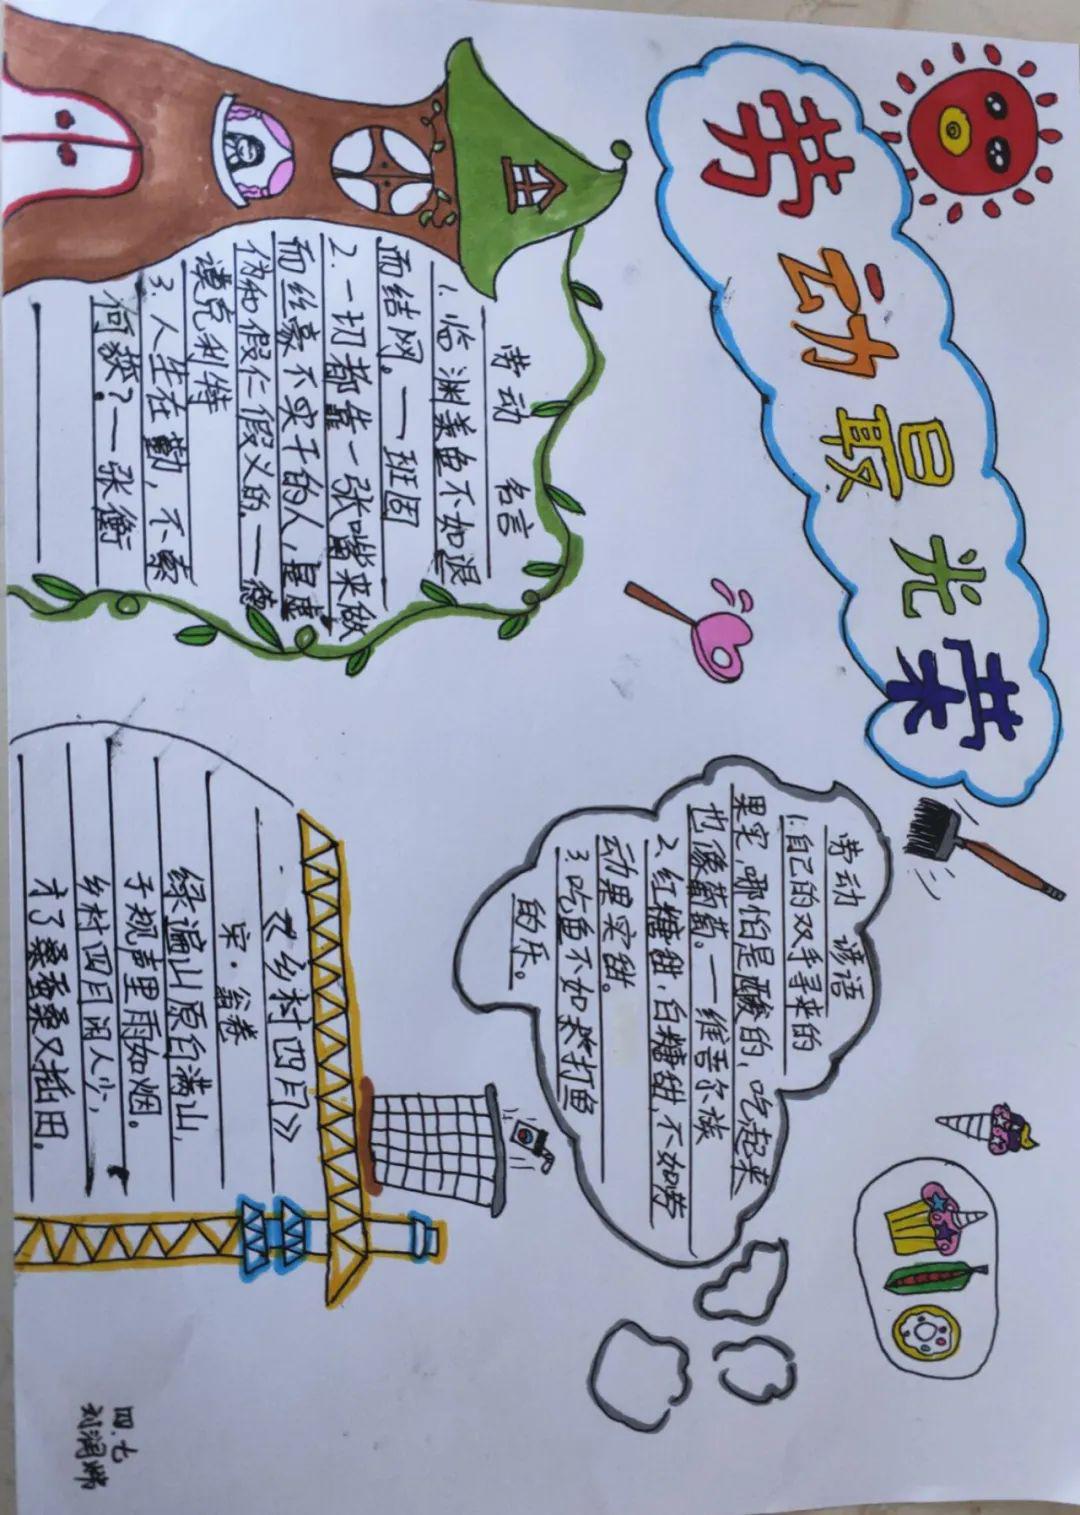 劳动最光荣
劳动 名言
1. 临渊羡鱼不如退
而结网。一班固
2. 一切都靠一张嘴来做
而丝豪不实干的人,是虚
伪和假仁假义的。一德
谟克利特
3. 人生在勤,不索
何获?一张衡
劳动 谚语
1.自己的双手寻来的
果实,哪怕是酸的,吃起来
也像葡萄。一维吾尔族
2、红糖甜,白糖甜,不如劳
动果实甜。
3、吃鱼不如桨打鱼
的乐。
《乡村四月》
宋·翁卷
绿遍山原白满山,
子规声里雨如烟。
乡村四月闲人少,
才了桑蚕桑又插田。
四.七
刘润